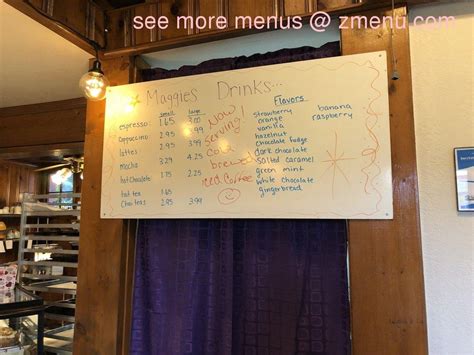 see more menus @ zmenu.com
Maggies Drinks...
small large
espresso 1.65 3.00
cappuccino 2.95 3.99
lattes 2.95 3.95
mocha 3.29 4.25
hot chocolate 1.75 2.95
hot tea 1.65
Chai teas 2.95 3.99
Now
Serving!
Cold
brewed
iced coffee
Flavors
strawberry banana
orange raspberry
vanilla
hazelnut
chocolate fudge
dark chocolate
salted caramel
green mint
white chocolate
gingerbread